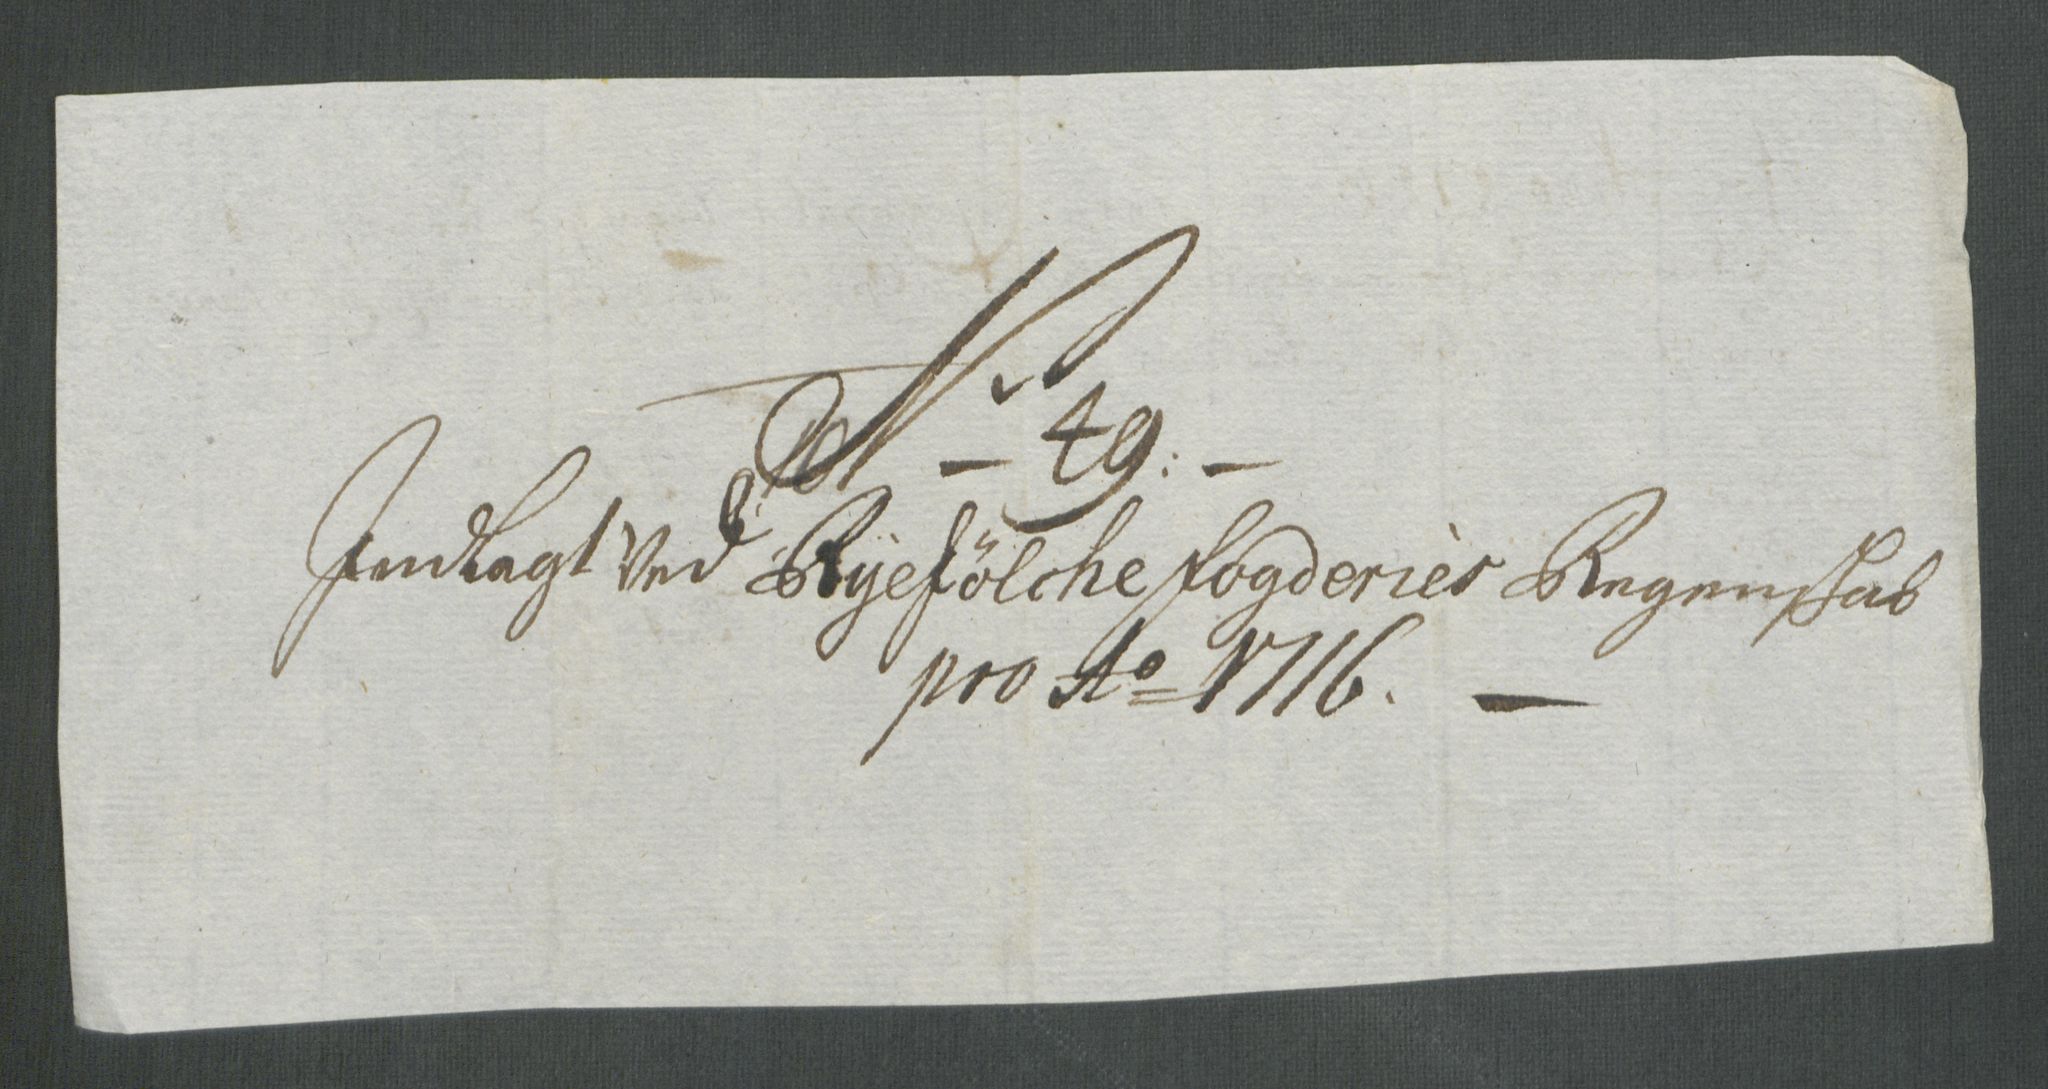 No – 49. –
Indlagt Ved Ryefölche fogderies Regenskab
pro Ao 1716. –